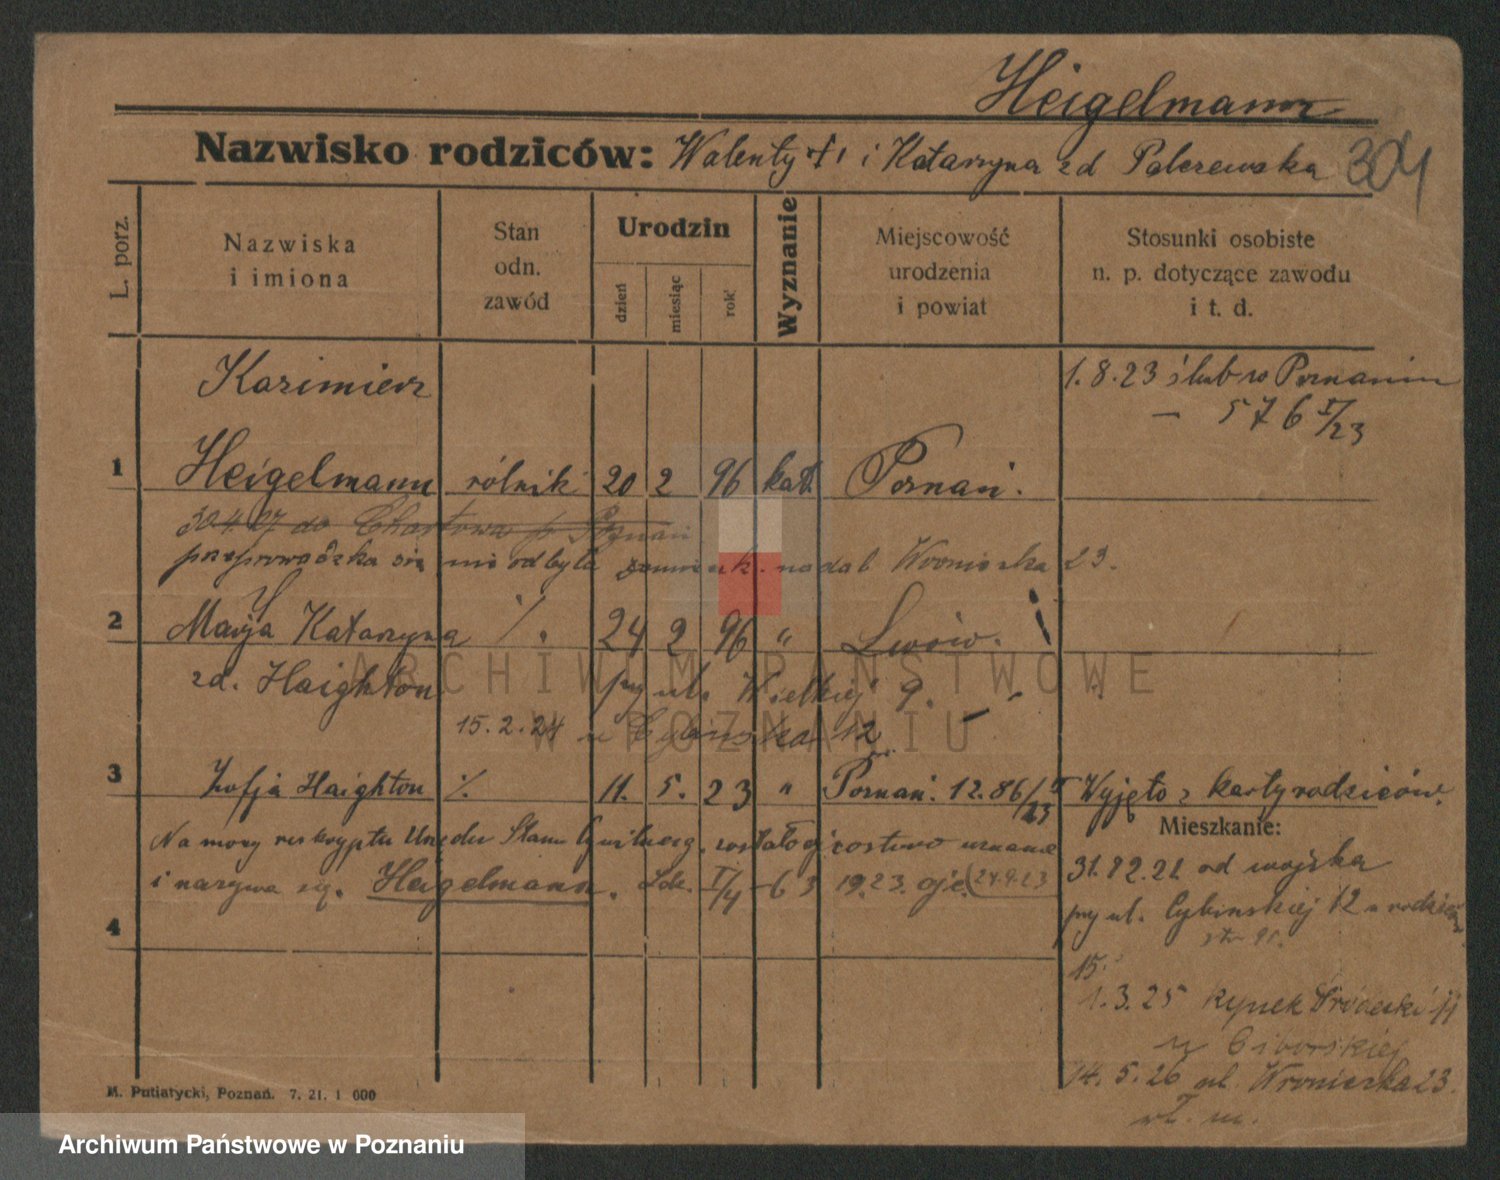 Heigelmann
Nazwisko rodziców: Walenty † i Katarzyna zd Palczewska 304
L. porz.
Nazwiska i imiona
Stan odn. zawód
Urodzin
dzień
miesiąc
rok
Wyznanie
Miejscowość urodzenia i powiat
Stosunki osobiste n. p. dotyczące zawodu i t. d.
Kazimierz
1.8.23 ślub w Poznaniu
— 576 I/23
1 Heigelmann rólnik 20 2 96 kat. Poznań.
30.4.27 do Chartowa p. Poznań
przeprowadzka się nie odbyła zamieszk. nadal Wroniecka 23.
2 Marja Katarzyna /. 24 2 96 " Lwów.
zd. Haighton przy ul. Wielkiej 9.
15.2.24 Cybińska 12
3 Zofja Haighton /. 11. 5. 23 " Poznań. 12.86/23 Wyjęto z karty rodziców.
Mieszkanie:
Na mocy reskryptu Urzędu Stanu Cywilneg. została ojcostwo uznane
i nazywa się. Heigelmann. I/4 - 63 19.23. 24.9.23
31.12.21 od wojska
przy ul. Cybińskiej 12 u rodziców
str 91.
4
15.
1.3.25 Rynek Śródecki 11
u Ciborskiej
14.5.26 ul. Wroniecka 23.
wł. m.
M. Putiatycki, Poznań. 7. 21. 1 000
ARCHIWUM PAŃSTWOWE
W POZNANIU
Archiwum Państwowe w Poznaniu